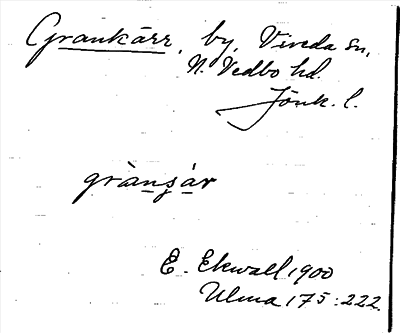 Grankärr, by, Vireda sn,
N. Vedbo hd.
Jönk. l.
grànşàr
E. Ekwall 1900
Ulma 175:222.